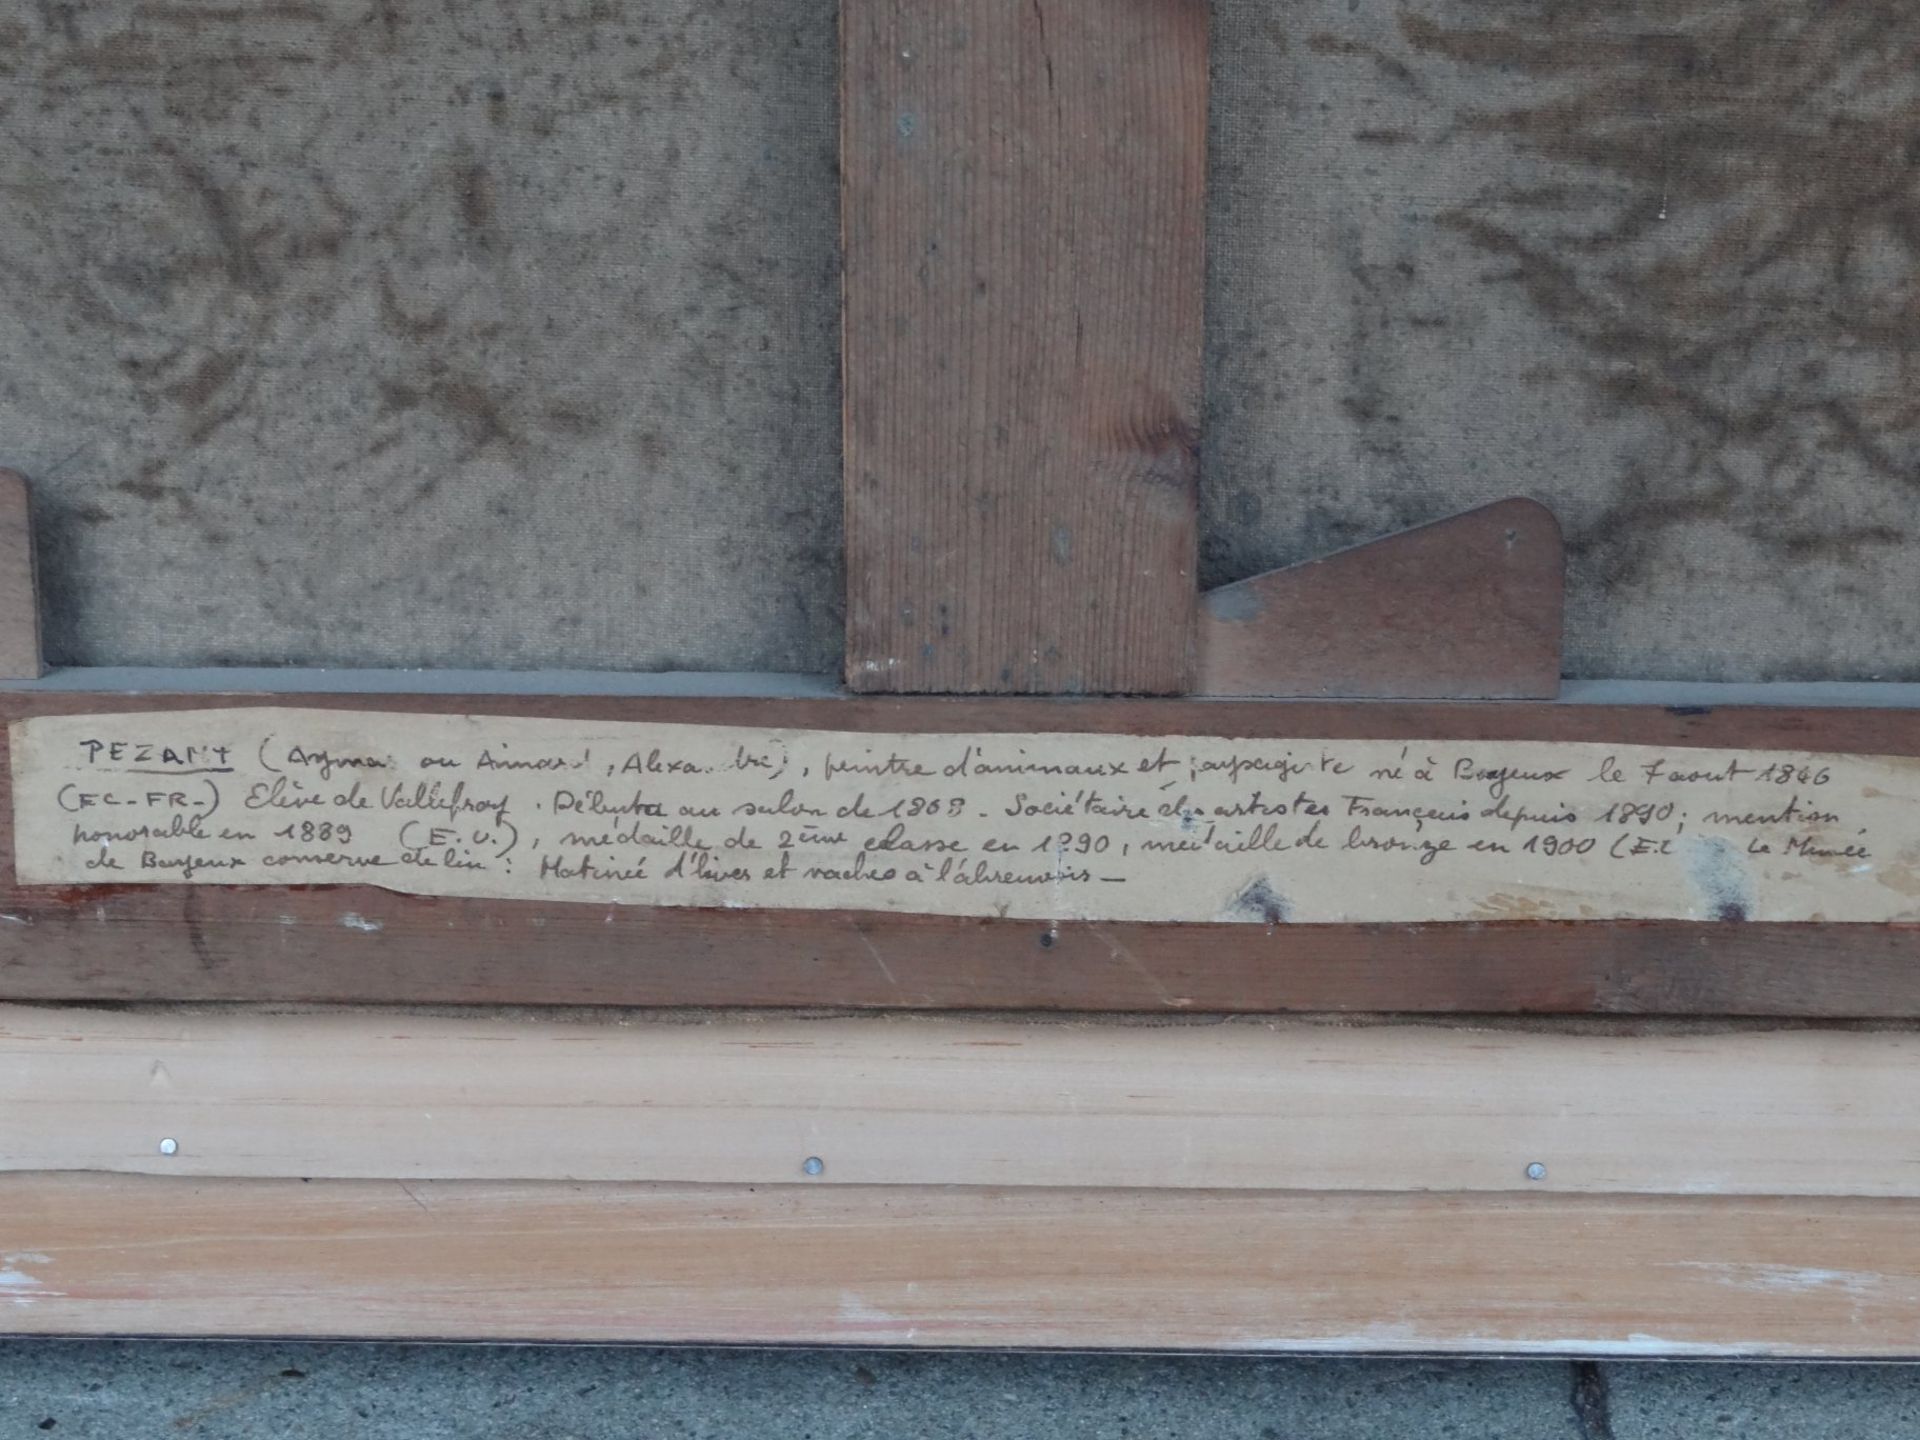 PEZANT (Aymar ou Aimard, Alexandre), peintre d'animaux et paysagiste né à Bayeux le 7 aout 1846
(EC-FR-) Elève de Vallefroy. Débuta au salon de 1868 - Sociétaire des artistes Français depuis 1890; mention
honorable en 1889 (E.U.), médaille de 2ème classe en 1890, médaille de bronze en 1900 Le Musée
de Bayeux conserve de lui: Matinée d'hiver et vaches à l'abreuvoir -